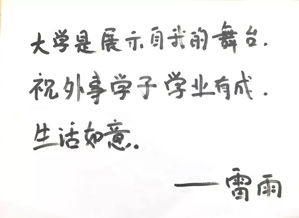 大学是展示自我的舞台.
祝外事学子学业有成.
生活如意.
——雷雨